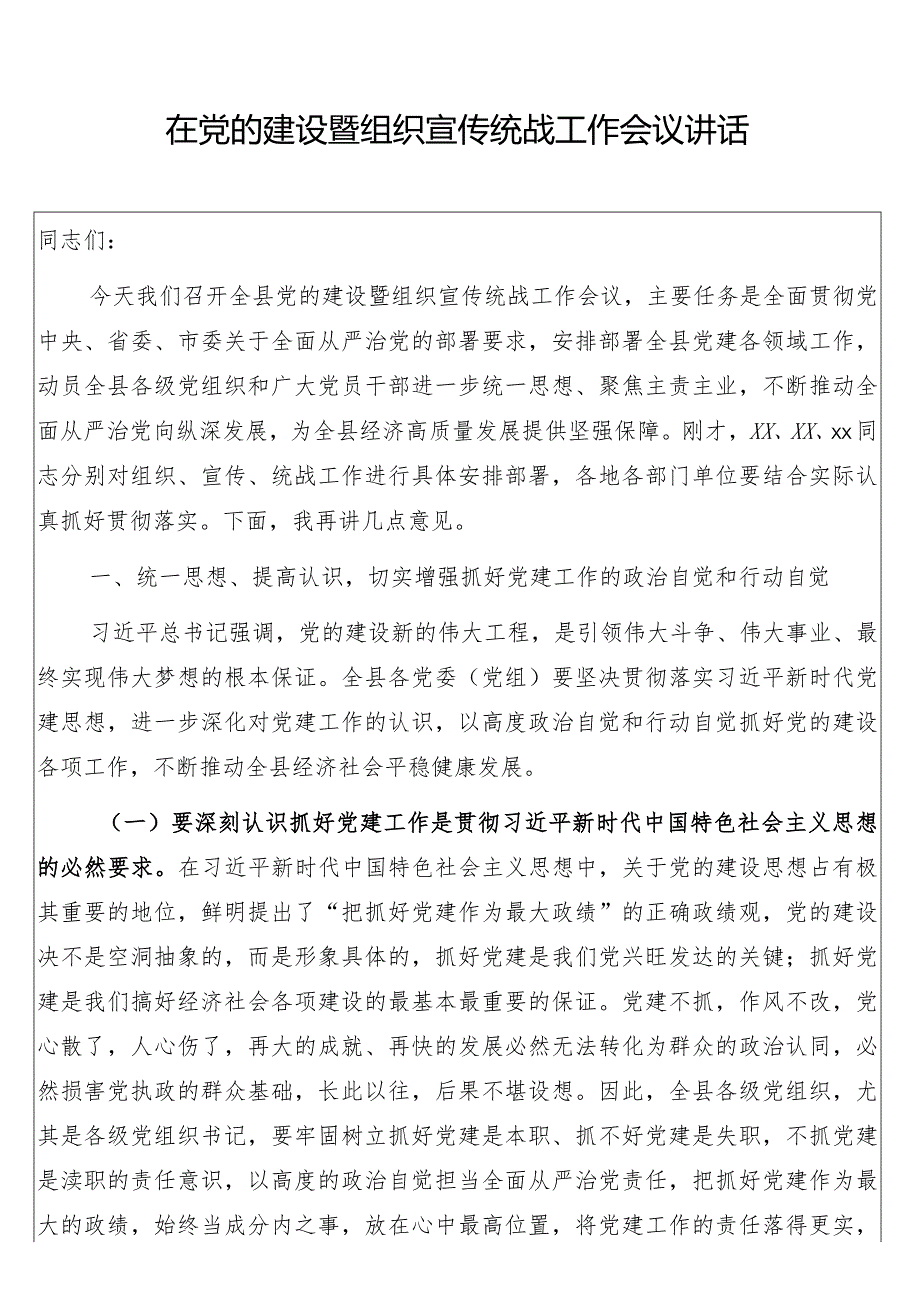 在党的建设暨组织宣传统战工作会议讲话
同志们：
今天我们召开全县党的建设暨组织宣传统战工作会议，主要任务是全面贯彻党
中央、省委、市委关于全面从严治党的部署要求，安排部署全县党建各领域工作，
动员全县各级党组织和广大党员干部进一步统一思想、聚焦主责主业，不断推动全
面从严治党向纵深发展，为全县经济高质量发展提供坚强保障。刚才，XX、XX、xx同
志分别对组织、宣传、统战工作进行具体安排部署，各地各部门单位要结合实际认
真抓好贯彻落实。下面，我再讲几点意见。
一、统一思想、提高认识，切实增强抓好党建工作的政治自觉和行动自觉
习近平总书记强调，党的建设新的伟大工程，是引领伟大斗争、伟大事业、最
终实现伟大梦想的根本保证。全县各党委（党组）要坚决贯彻落实习近平新时代党
建思想，进一步深化对党建工作的认识，以高度政治自觉和行动自觉抓好党的建设
各项工作，不断推动全县经济社会平稳健康发展。
（一）要深刻认识抓好党建工作是贯彻习近平新时代中国特色社会主义思想
的必然要求。在习近平新时代中国特色社会主义思想中，关于党的建设思想占有极
其重要的地位，鲜明提出了“把抓好党建作为最大政绩”的正确政绩观，党的建设
决不是空洞抽象的，而是形象具体的，抓好党建是我们党兴旺发达的关键；抓好党
建是我们搞好经济社会各项建设的最基本最重要的保证。党建不抓，作风不改，党
心散了，人心伤了，再大的成就、再快的发展必然无法转化为群众的政治认同，必
然损害党执政的群众基础，长此以往，后果不堪设想。因此，全县各级党组织，尤
其是各级党组织书记，要牢固树立抓好党建是本职、抓不好党建是失职，不抓党建
是渎职的责任意识，以高度的政治自觉担当全面从严治党责任，把抓好党建作为最
大的政绩，始终当成分内之事，放在心中最高位置，将党建工作的责任落得更实，